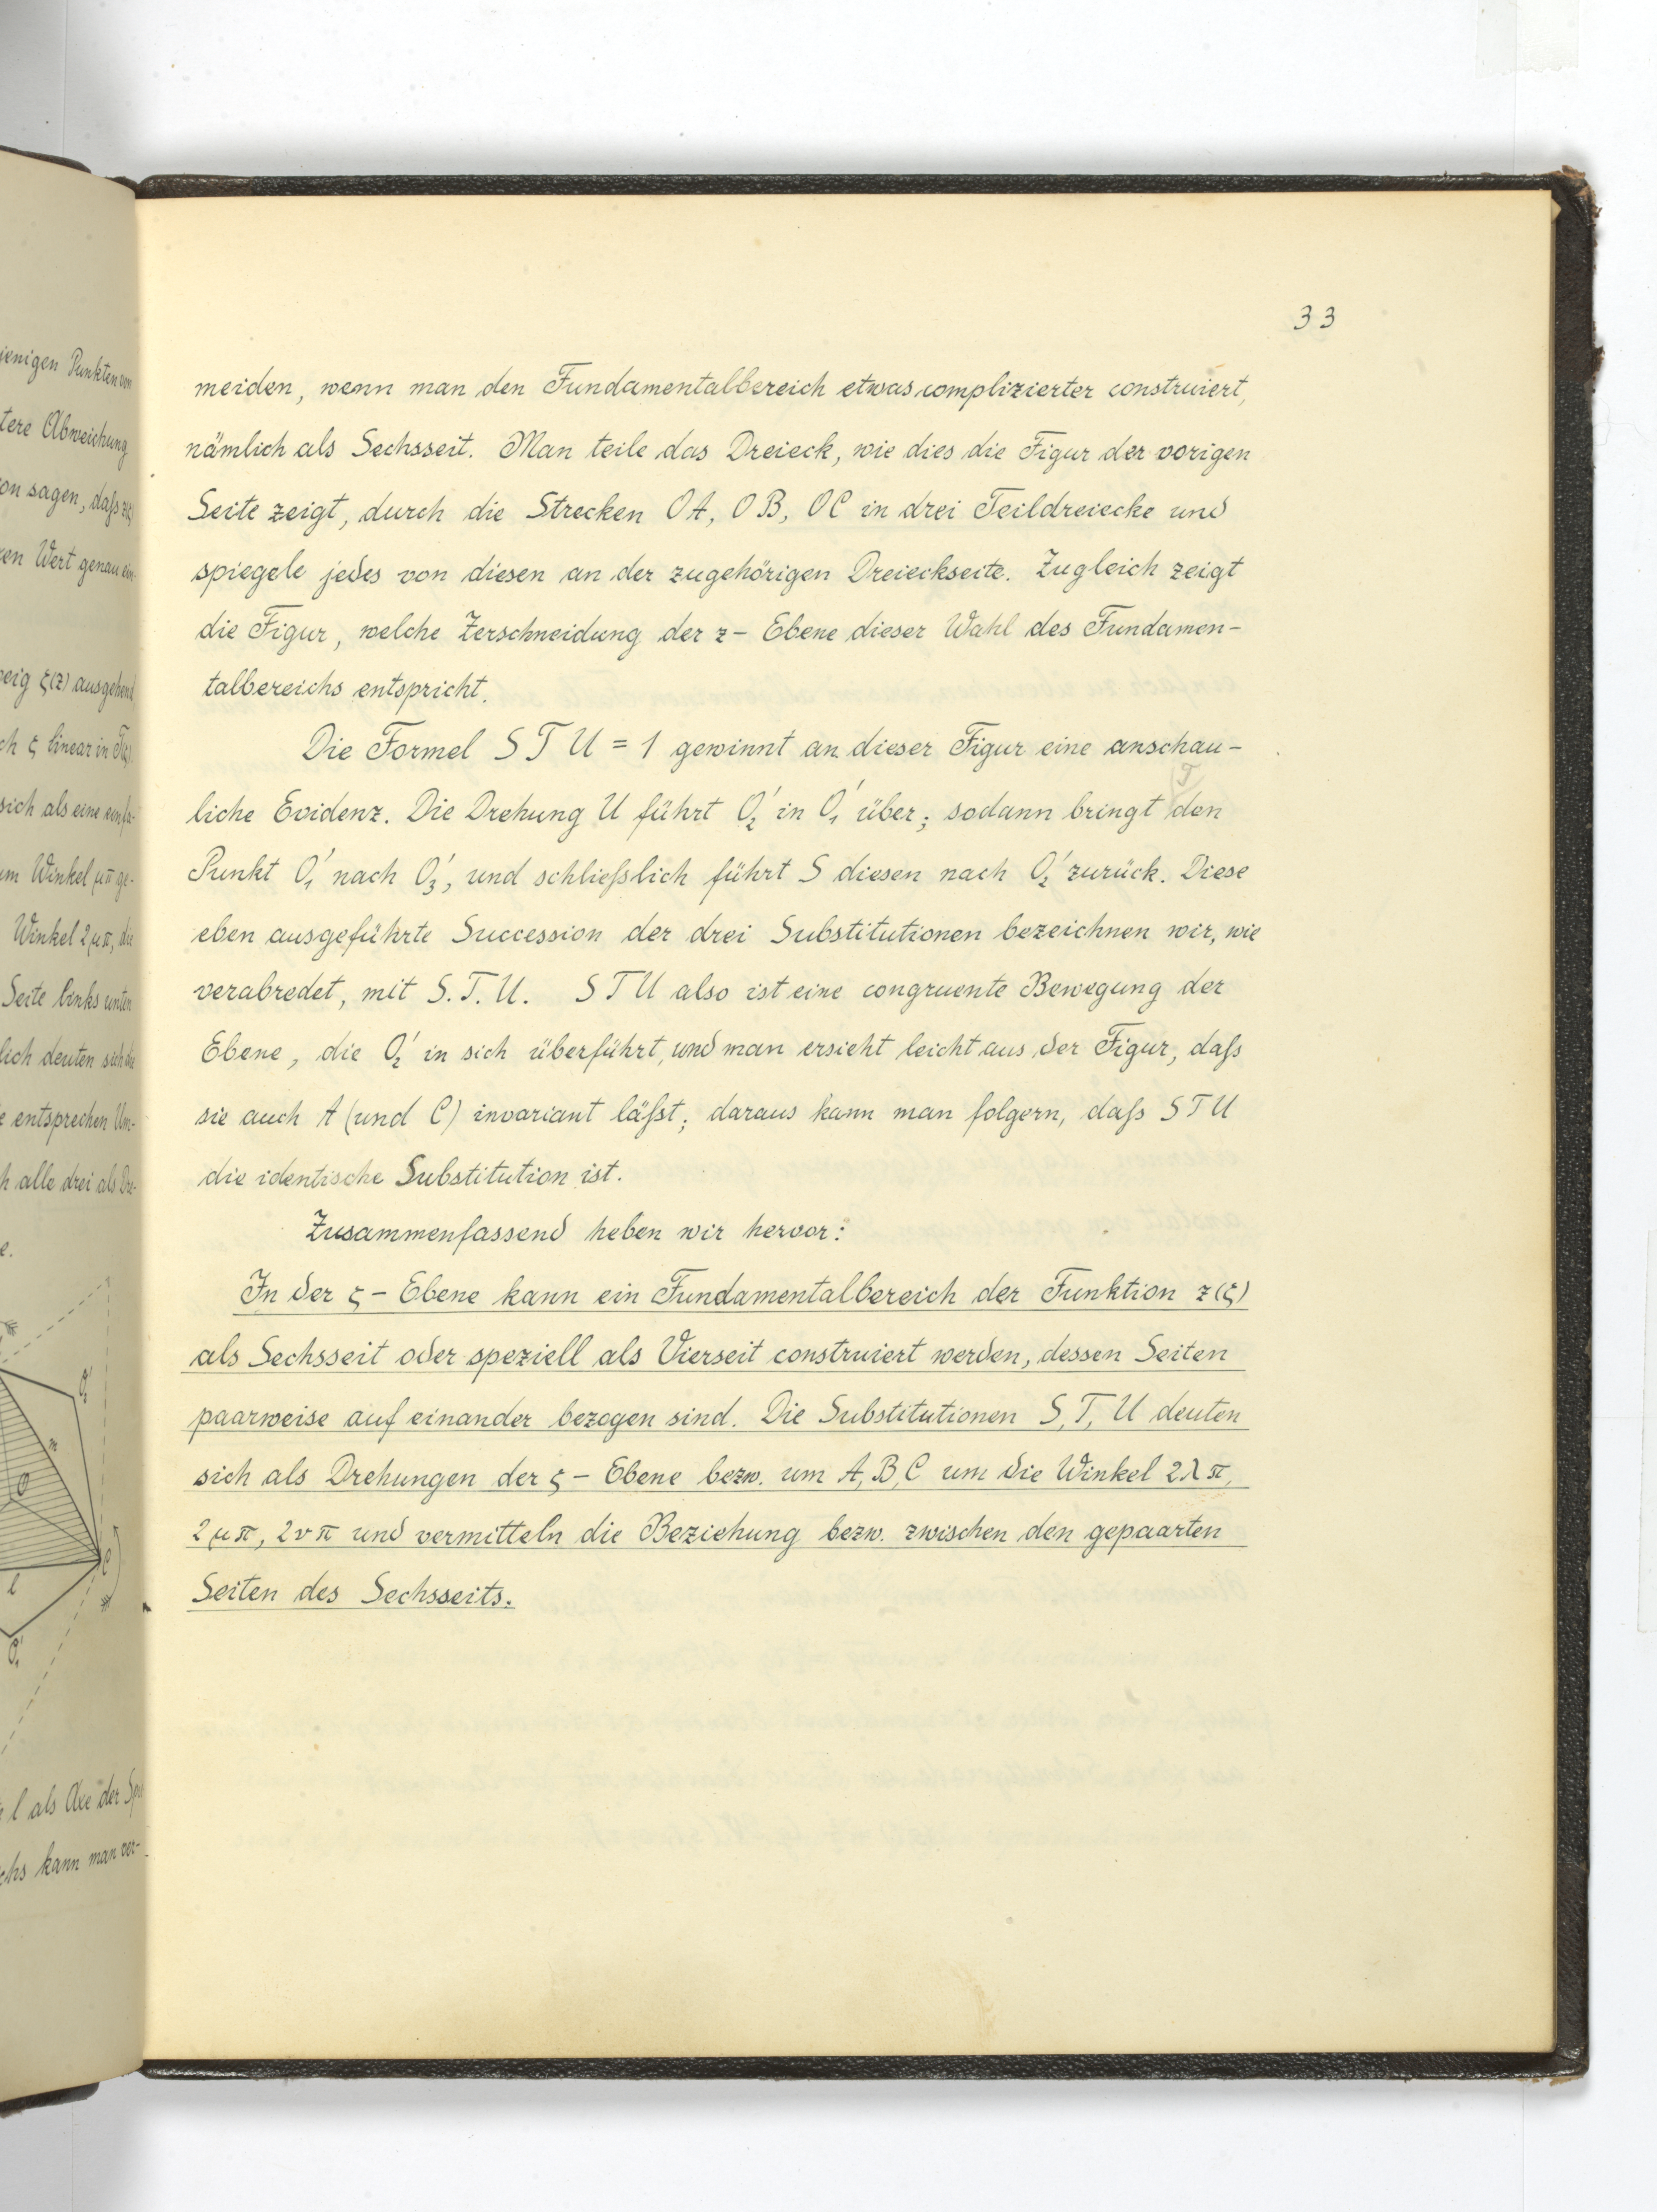 33
meiden, wenn man den Fundamentalbereich etwas complizierter construiert,
nämlich als Sechsseit. Man teile das Dreieck, wie dies die Figur der vorigen
Seite zeigt, durch die Strecken OA, OB, OC in drei Teildreiecke und
spiegele jedes von diesen an der zugehörigen Dreieckseite. Zugleich zeigt
die Figur, welche Zerschneidung der z-Ebene dieser Wahl des Fundamen-
talbereichs entspricht.
Die Formel S T U = 1 gewinnt an dieser Figur eine anschau-
liche Evidenz. Die Drehung U führt O₂' in O₁' über; sodann bringt T den
Punkt O₁' nach O₃', und schließlich führt S diesen nach O₂' zurück. Diese
eben ausgeführte Succession der drei Substitutionen bezeichnen wir, wie
verabredet, mit S. T. U. S T U also ist eine congruente Bewegung der
Ebene, die O₂' in sich überführt, und man ersieht leicht aus der Figur, daß
sie auch A (und C) invariant läßt; daraus kann man folgern, daß S T U
die identische Substitution ist.
Zusammenfassend heben wir hervor:
In der ζ-Ebene kann ein Fundamentalbereich der Funktion z(ζ)
als Sechsseit oder speziell als Vierseit construiert werden, dessen Seiten
paarweise auf einander bezogen sind. Die Substitutionen S, T, U deuten
sich als Drehungen der ζ-Ebene bezw. um A, B, C um die Winkel 2λπ,
2μπ, 2νπ und vermitteln die Beziehung bezw. zwischen den gepaarten
Seiten des Sechsseits.
jenigen Punkten von
tere Abweichung
on sagen, daß z(ζ)
en Wert genau ein-
eig ζ(z) ausgehend
ch ζ linear in
sich als eine einfa-
um Winkel μπ ge-
Winkel 2μπ, die
Seite links unten
lich deuten sich die
e entsprechen Um-
h alle drei als Dre-
e.
O₂'
m
O
C
l
O₁'
l als Axe der Spie
chs kann man ver-